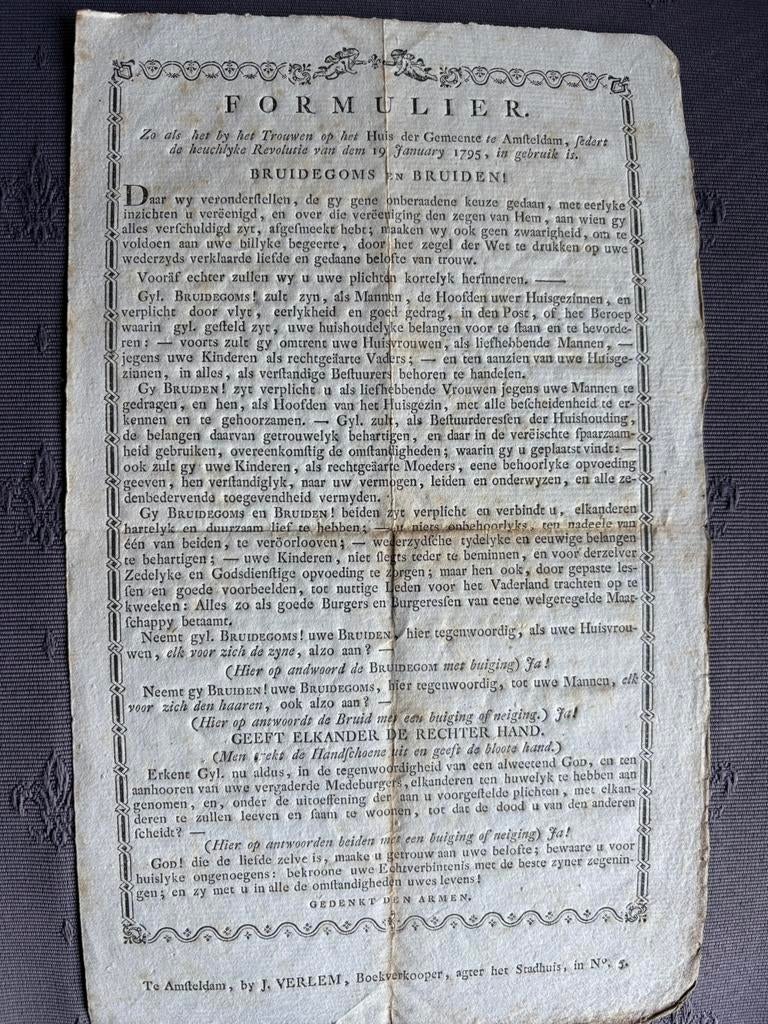 FORMULIER.
Zo als het by het Trouwen op het Huis der Gemeente te Amsteldam, sedert
de heuchlyke Revolutie van dem 19 January 1795, in gebruik is.
BRUIDEGOMS EN BRUIDEN!
Daar wy veronderstellen, de gy gene onberaadene keuze gedaan, met eerlyke
inzichten u veréenigd, en over die veréeniging den zegen van Hem, aan wien gy
alles verschuldigd zyt, afgesmeekt hebt; maaken wy ook geen zwaarigheid, om te
voldoen aan uwe billyke begeerte, door het zegel der Wet te drukken op uwe
wederzyds verklaarde liefde en gedaane belofte van trouw.
Vooräf echter zullen wy u uwe plichten kortelyk herïnneren. —
Gyl. BRUIDEGOMS! zult zyn, als Mannen, de Hoofden uwer Huisgezinnen, en
verplicht door vlyt, eerlykheid en goed gedrag, in den Post, of het Beroep
waarin gyl. gesteld zyt, uwe huishoudelyke belangen voor te staan en te bevorde-
ren: — voorts zult gy omtrent uwe Huisvrouwen, als liefhebbende Mannen, —
jegens uwe Kinderen als rechtgeäarte Vaders; — en ten aanzien van uwe Huisge-
zinnen, in alles, als verstandige Bestuurers behoren te handelen.
Gy BRUIDEN! zyt verplicht u als liefhebbende Vrouwen jegens uwe Mannen te
gedragen, en hen, als Hoofden van het Huisgezin, met alle bescheidenheid te er-
kennen en te gehoorzamen. — Gyl. zult, als Bestuurderessen der Huishouding,
de belangen daarvan getrouwelyk behartigen, en daar in de veréischte spaarzaam-
heid gebruiken, overeenkomstig de omstandigheden; waarin gy u geplaatst vindt: —
ook zult gy uwe Kinderen, als rechtgeäarte Moeders, eene behoorlyke opvoeding
geeven, hen verstandiglyk, naar uw vermogen, leiden en onderwyzen, en alle ze-
denbedervende toegevendheid vermyden.
Gy BRUIDEGOMS en BRUIDEN! beiden zyt verplicht en verbindt u, elkanderen
hartelyk en duurzaam lief te hebben; — u niets onbehoorlyks, ten nadeele van
één van beiden, te veröorlooven; — wederzydsche tydelyke en eeuwige belangen
te behartigen; — uwe Kinderen, niet slegts teder te beminnen, en voor derzelver
Zedelyke en Godsdienstige opvoeding te zorgen; maar hen ook, door gepaste les-
sen en goede voorbeelden, tot nuttige Leden voor het Vaderland trachten op te
kweeken: Alles zo als goede Burgers en Burgeressen van eene welgeregelde Maat-
schappy betaamt.
Neemt gyl. BRUIDEGOMS! uwe BRUIDEN, hier tegenwoordig, als uwe Huisvrou-
wen, elk voor zich de zyne, alzo aan? —
(Hier op andwoord de BRUIDEGOM met buiging) Ja!
Neemt gy BRUIDEN! uwe BRUIDEGOMS, hier tegenwoordig, tot uwe Mannen, elk
voor zich den haaren, ook alzo aan? —
(Hier op antwoordt de Bruid met een buiging of neiging.) Ja!
GEEFT ELKANDER DE RECHTER HAND.
(Men trekt de Handschoene uit en geeft de bloote hand.)
Erkent Gyl. nu aldus, in de tegenwoordigheid van een alweetend GOD, en ten
aanhooren van uwe vergaderde Medeburgers, elkanderen ten huwelyk te hebben aan
genomen, en, onder de uitoeffening der aan u voorgestelde plichten, met elkan-
deren te zullen leeven en saam te woonen, tot dat de dood u van den anderen
scheidt? —
(Hier op antwoorden beiden met een buiging of neiging) Ja!
GOD! die de liefde zelve is, maake u getrouw aan uwe belofte; bewaare u voor
huislyke ongenoegens: bekroone uwe Echtverbintenis met de beste zyner zegenin-
gen; en zy met u in alle de omstandigheden uwes levens!
GEDENKT DEN ARMEN.
Te Amsteldam, by J. VERLEM, Boekverkooper, agter het Stadhuis, in No. 5.